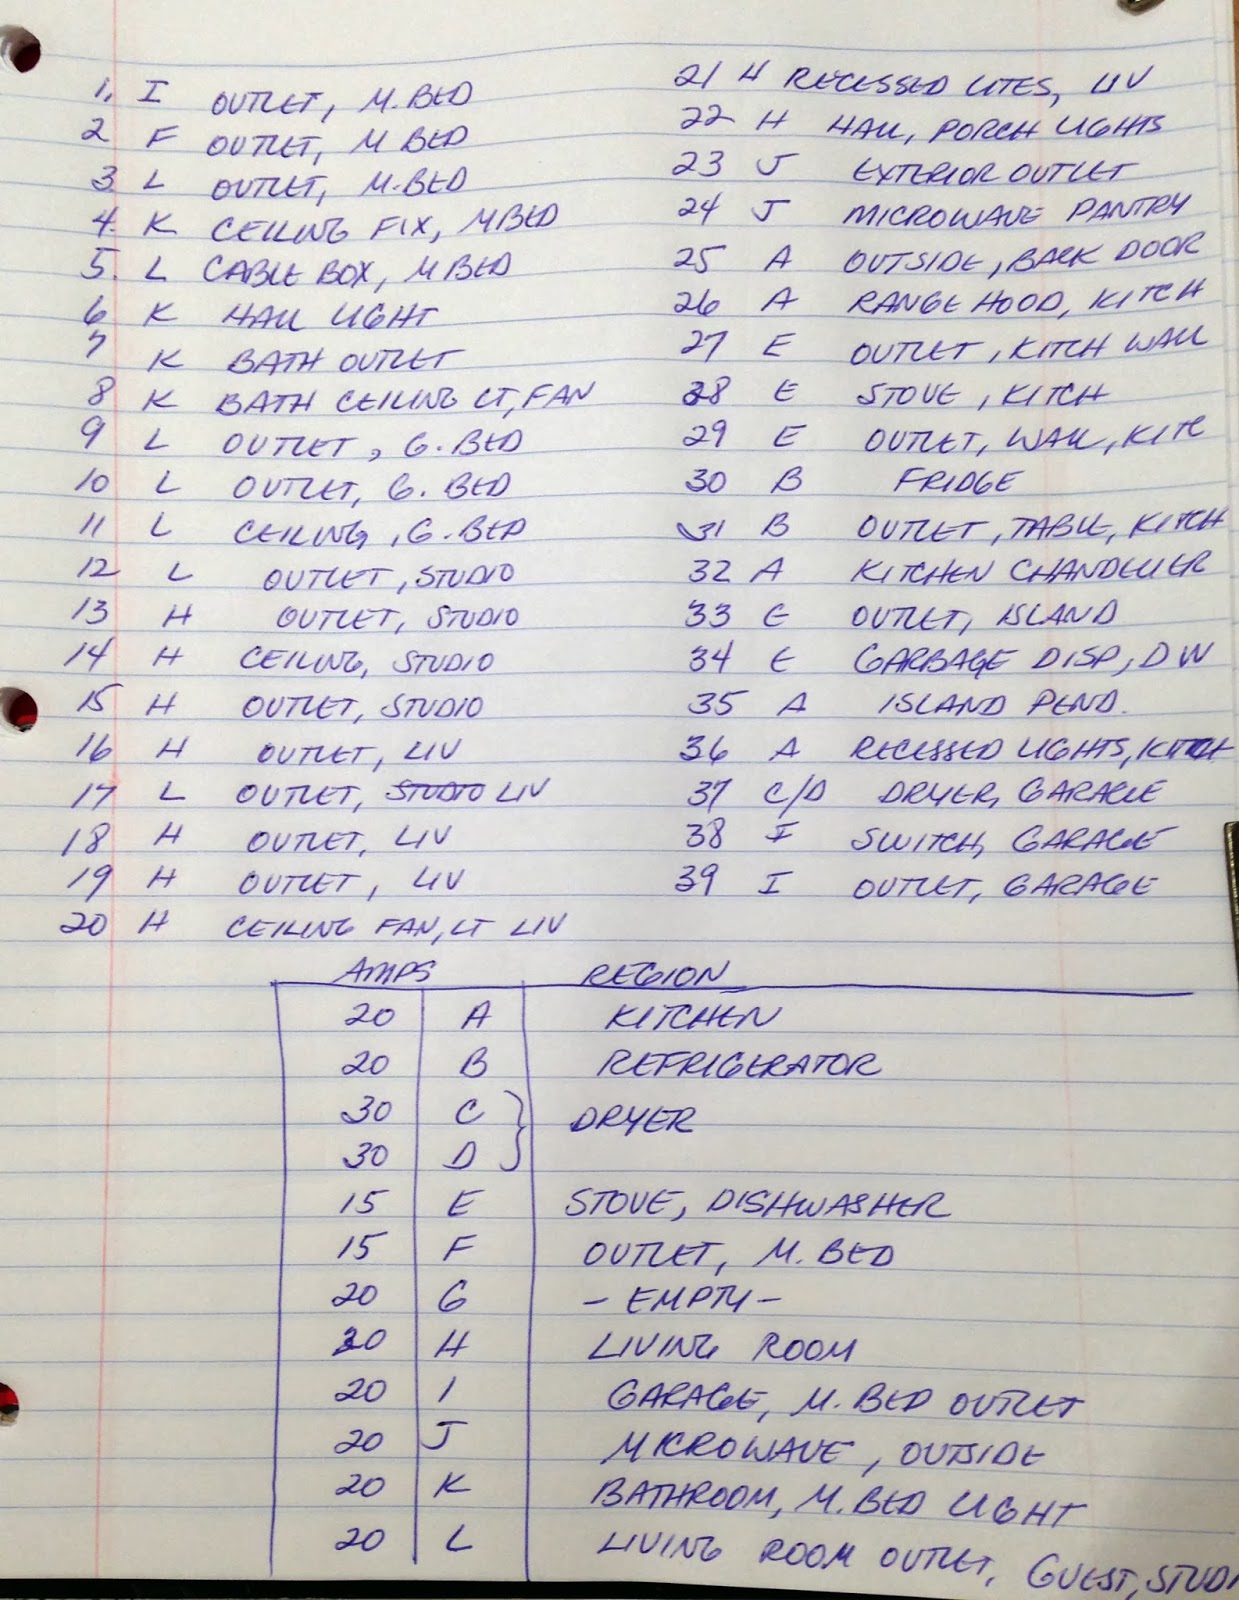 1. I OUTLET, M. BED
2 F OUTLET, M BED
3. L OUTLET, M. BED
4. K CEILING FIX, MBED
5. L CABLE BOX, M BED
6 K HALL LIGHT
7 K BATH OUTLET
8 K BATH CEILING LT, FAN
9 L OUTLET, G. BED
10 L OUTLET, G. BED
11 L CEILING, G. BED
12 L OUTLET, STUDIO
13 H OUTLET, STUDIO
14 H CEILING, STUDIO
15 H OUTLET, STUDIO
16 H OUTLET, LIV
17 L OUTLET, STUDIO LIV
18 H OUTLET, LIV
19 H OUTLET, LIV
20 H CEILING FAN, LT LIV
21 H RECESSED LITES, LIV
22 H HALL, PORCH LIGHTS
23 J EXTERIOR OUTLET
24 J MICROWAVE PANTRY
25 A OUTSIDE, BACK DOOR
26 A RANGE HOOD, KITCH
27 E OUTLET, KITCH WALL
28 E STOVE, KITCH
29 E OUTLET, WALL, KITC
30 B FRIDGE
31 B OUTLET, TABLE, KITCH
32 A KITCHEN CHANDELIER
33 E OUTLET, ISLAND
34 E GARBAGE DISP, DW
35 A ISLAND PEND.
36 A RECESSED LIGHTS, KITCH
37 C/D DRYER, GARAGE
38 I SWITCH, GARAGE
39 I OUTLET, GARAGE
AMPS REGION
20 A KITCHEN
20 B REFRIGERATOR
30 C } DRYER
30 D
15 E STOVE, DISHWASHER
15 F OUTLET, M. BED
20 G - EMPTY -
20 H LIVING ROOM
20 I GARAGE, M. BED OUTLET
20 J MICROWAVE, OUTSIDE
20 K BATHROOM, M. BED LIGHT
20 L LIVING ROOM OUTLET, GUEST, STUDI